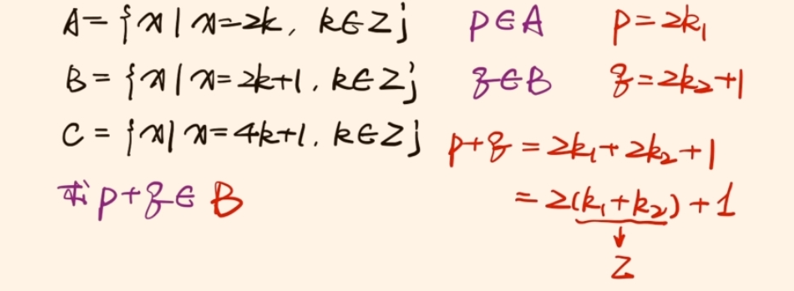 A={x|x=2k, k∈Z} p∈A p=2k₁
B={x|x=2k+1, k∈Z} q∈B q=2k₂+1
C={x|x=4k+1, k∈Z} p+q=2k₁+2k₂+1
求p+q∈B =2(k₁+k₂)+1
↓
Z